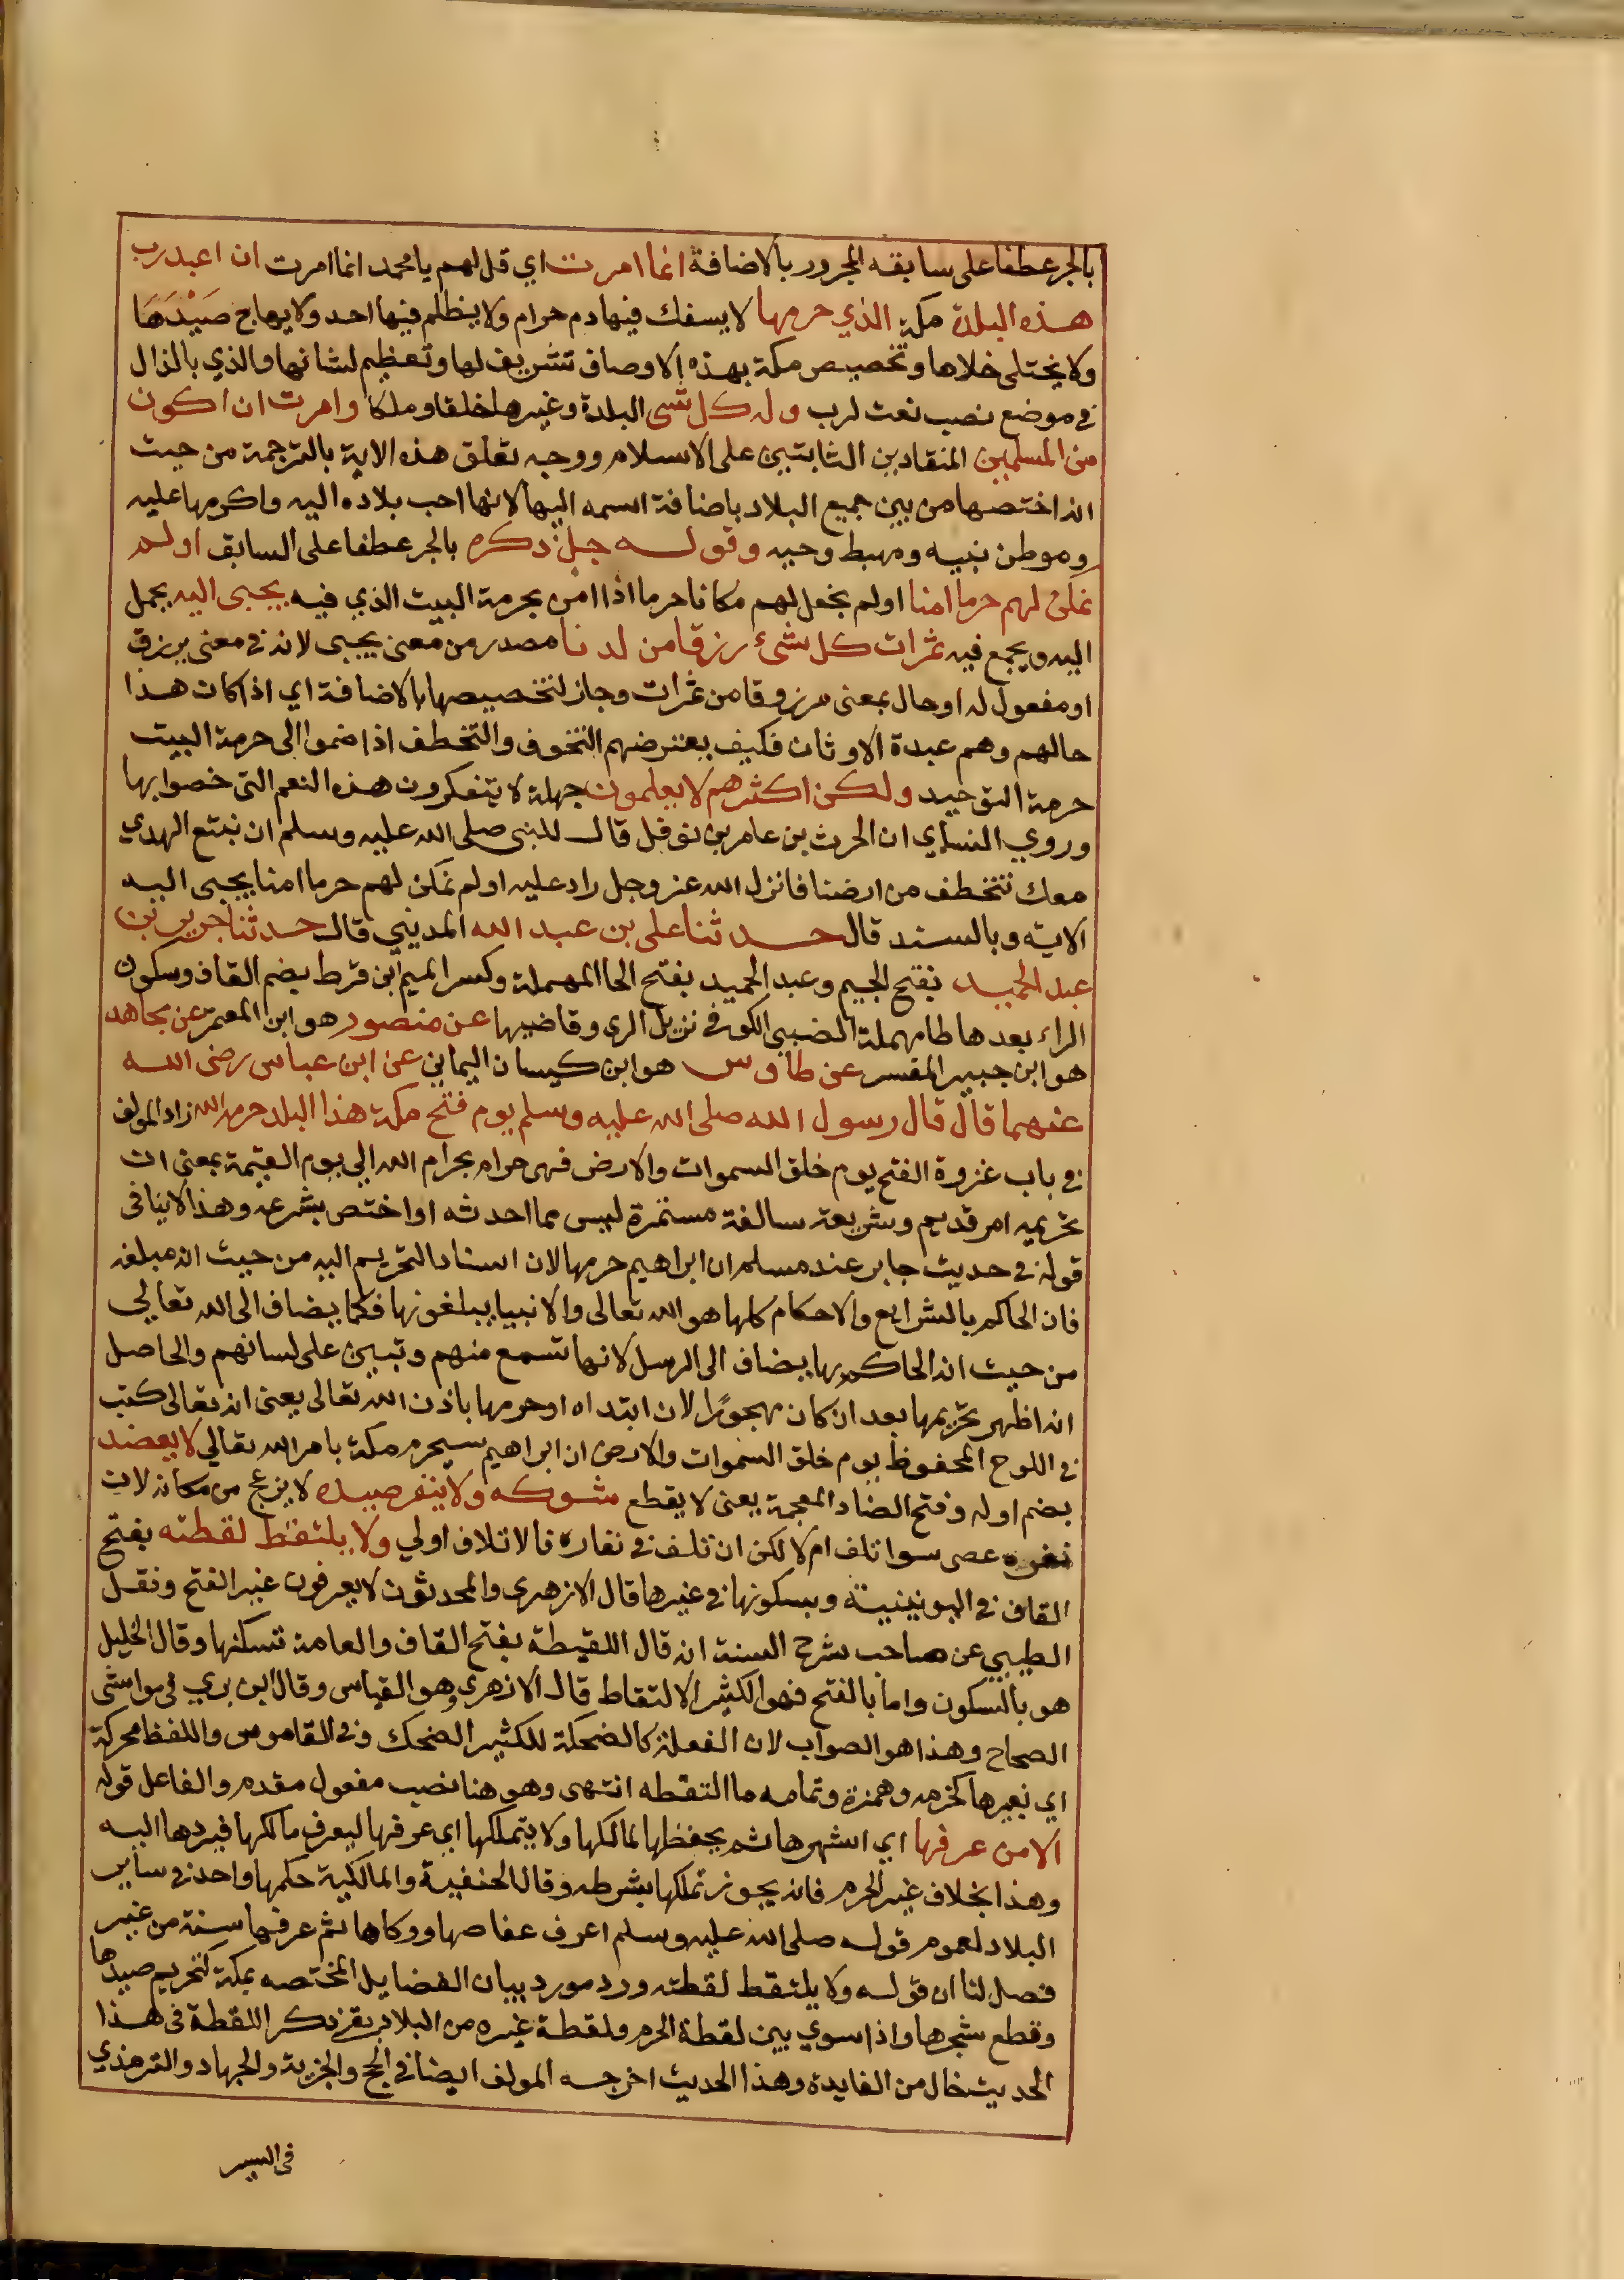 بالجر عطفا على سابقه المجرور بالاضافة انما امرت اي قل لهم يا محمد انما امرت ان اعبد رب
هذه البلدة مكة الذي حرمها لا يسفك فيها دم حرام ولا يظلم فيها احد ولا يهاج صَيْدُهَا
ولا يختلى خلاها وتخصيص مكة بهذه الاوصاف تشريف لها وتعظيم لشانها والذي بالذال
في موضع نصب نعت لرب وله كل شى البلدة وغيرها خلقا وملكا وامرت ان اكون
من المسلمين المنقادين الثابتين على الاسلام ووجه تعلق هذه الاية بالترجمة من حيث
انه اختصها من بين جميع البلاد باضافة اسمه اليها لانها احب بلاده اليه واكرمها عليه
وموطن نبيه ومهبط وحيه وقوله جل ذكره بالجر عطفا على السابق اولم
نمكن لهم حرما امنا اولم نجعل لهم مكانا حرما اذا امن بحرمة البيت الذي فيه يجبى اليه يحمل
اليه ويجمع فيه ثمرات كل شئ رزقا من لدنا مصدر من معنى يجبى لانه في معنى يرزق
او مفعول له او حال بمعنى مرزوقا من ثمرات وجاز لتخصيصها بالاضافة اي اذا كان هذا
حالهم وهم عبدة الاوثان فكيف يعترضهم التخوف والتخطف اذا ضموا الى حرمة البيت
حرمة التوحيد ولكن اكثرهم لا يعلمون جهلة لا يتفكرون هذه النعم التى خصوا بها
وروي النساي ان الحرث بن عامر بن نوفل قال للنبى صلى الله عليه وسلم ان نتبع الهدي
معك نتخطف من ارضنا فانزل الله عز وجل راد عليه اولم نمكن لهم حرما امنا يجبى اليه
الاية وبالسند قال حدثنا على بن عبد الله المديني قال حدثنا جرير بن
عبد الحميد بفتح الجيم وعبد الحميد بفتح الحا المهملة وكسر الميم ابن قرط بضم القاف وسكون
الراء بعدها طا مهملة الضبى الكوفي نزيل الرى وقاضيها عن منصور هو ابن المعتمر عن مجاهد
هو ابن جبير المفسر عن طاوس هو ابن كيسان اليماني عن ابن عباس رضى الله
عنهما قال قال رسول الله صلى الله عليه وسلم يوم فتح مكة هذا البلد حرمه الله زاد المولف
في باب غزوة الفتح يوم خلق السموات والارض فهى حرام بحرام الله الى يوم القيمة بمعنى ان
تحريمه امر قديم وشريعة سالفة مستمرة ليس مما احدثه او اختص بشرعه وهذا لا ينافى
قوله في حديث جابر عند مسلم ان ابراهيم حرمها لان اسناد التحريم اليه من حيث انه مبلغه
فان الحاكم بالشرايع والاحكام كلها هو الله تعالى والانبيا يبلغونها فكما يضاف الى الله تعالي
من حيث انه الحاكم بها يضاف الى الرسل لانها تسمع منهم وتبين على لسانهم والحاصل
انه اظهر تحريمها بعد ان كان مهجورًا لا انه ابتداه او حرمها باذن الله تعالى يعنى انه تعالى كتب
في اللوح المحفوظ يوم خلق السموات والارض ان ابراهيم سيحرم مكة بامر الله تعالي لا يعضد
بضم اوله وفتح الضاد المعجمة يعنى لا يقطع شوكه ولا ينفر صيده لا يزعج من مكانه لان
نفره عصى سوا تلف ام لا لكن ان تلف في نفاره فالاتلاف اولي ولا يلتقط لقطته بفتح
القاف في اليونينية وبسكونها في غيرها قال الازهرى والمحدثون لا يعرفون غير الفتح ونقل
الطيبي عن صاحب شرح السنة انه قال اللقيطة بفتح القاف والعامة تسكنها وقال الخليل
هو بالسكون واما بالفتح فهو الكثير الالتقاط قال الازهرى وهو القياس وقال ابن بري في حواشى
الصحاح وهذا هو الصواب لان الفعلة كالضحكة للكثير الضحك وفي القاموس واللقطا محركة
اي بغيرها كخرمه وهمزة وتمامه ما التقطه انتهى وهو هنا نصب مفعول مقدم والفاعل قوله
الا من عرفها اي اشهرها ثم يحفظها لمالكها ولا يتملكها اي عرفها ليعرف مالكها فيردها اليه
وهذا بخلاف غير الحرم فانه يجوز تملكها بشرطه وقال الحنفية والمالكية حكمها واحد في ساير
البلاد لعموم قوله صلى الله عليه وسلم اعرف عفاصها ووكاها ثم عرفها سنة من غير
فصل لنا ان قوله ولا يلتقط لقطته ورد مورد بيان الفضايل المختصه بمكة كتحريم صيدها
وقطع شجرها واذا سوي بين لقطة الحرم ولقطة غيره من البلاد بقى ذكر اللقطة فى هذا
الحديث خال من الفايدة وهذا الحديث اخرجه المولف ايضا في الحج والجزية والجهاد والترمذي
فى السير